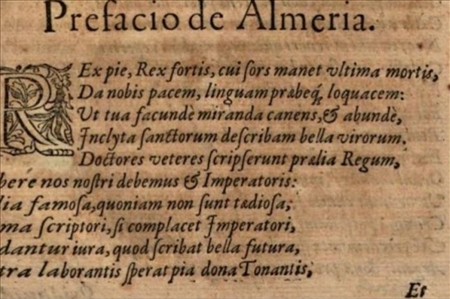 Prefacio de Almeria.
REx pie, Rex fortis, cui sors manet vltima mortis,
Da nobis pacem, linguam præbeq́, loquacem:
Vt tua facundè miranda canens, & abundè,
Inclyta sanctorum describam bella virorum.
Doctores veteres scripserunt prælia Regum,
bere nos nostri debemus & Imperatoris:
lia famosa, quoniam non sunt tædiosa,
ma scriptori, si complacet Imperatori,
dantur iura, quod scribat bella futura,
tra laborantis sperat pia dona Tonantis,
Et